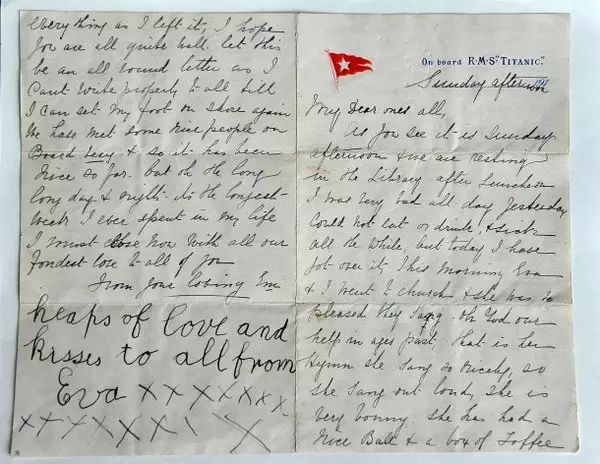 On board R.M.S "TITANIC."
Sunday afternoon 191
My Dear ones all,
As you see it is Sunday
afternoon & we are resting
in the Library after luncheon
I was very bad all day yesterday
Could not eat or drink, & sick
all the while, but today I have
got over it, This morning Eva
& I went to church & she was so
pleased they sang oh God our
help in ages past, that is her
Hymn she sang so nicely, so
she sang out loud, she is
very bonny. she has had a
nice Ball & a box of Toffee
everything as I left it, I hope
you are all quite well. let this
be an all round letter as I
Cant write properly to all till
I can set my foot on shore again
We have met some nice people on
Board Lucy, & so it has been
Nice so far. but oh the long
long day & nights. its the longest
Week I ever spent in my life
I must close Now With all our
fondest love to all of you
From your loving
heaps of love and
kisses to all from
Eva X X X X X X X
X X X X X X X X